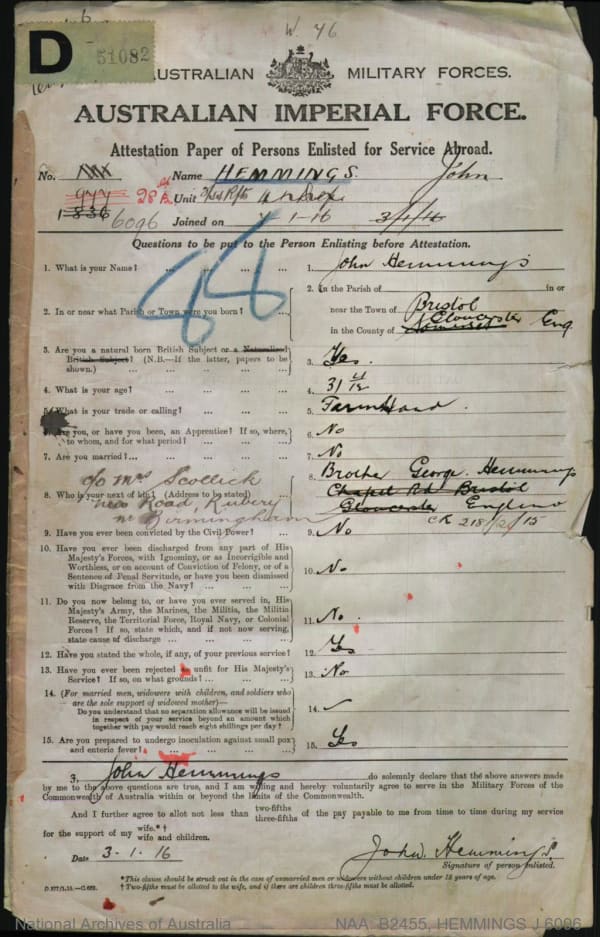 W. 46
D
51082
AUSTRALIAN MILITARY FORCES.
AUSTRALIAN IMPERIAL FORCE.
Attestation Paper of Persons Enlisted for Service Abroad.
No. Name HEMMINGS. John
28 Unit
1836 6096 Joined on 1-16 3/1/16
Questions to be put to the Person Enlisting before Attestation.
1. What is your Name? ... ... ... ... 1. John Hemmings
2. In or near what Parish or Town were you born? ... 2. In the Parish of in or
near the Town of Bristol
in the County of Somerset Gloucester Eng
3. Are you a natural born British Subject or a Naturalized
British Subject? (N.B.—If the latter, papers to be
shown.) ... ... ... ... 3. Yes.
4. What is your age? ... ... ... ... 4. 31
5. What is your trade or calling? ... ... ... 5. Farm Hand.
6. Are you, or have you been, an Apprentice? If so, where,
to whom, and for what period? ... ... ... 6. No
7. Are you married? ... ... ... ... 7. No
c/o Mrs Scollick
8. Who is your next of kin? (Address to be stated) ... 8. Brother George Hemmings
New Road, Rubery Chapel Rd Bristol
nr Birmingham Gloucester England
9. Have you ever been convicted by the Civil Power? ... 9. No
10. Have you ever been discharged from any part of His
Majesty's Forces, with Ignominy, or as Incorrigible and
Worthless, or on account of Conviction of Felony, or of a
Sentence of Penal Servitude, or have you been dismissed
with Disgrace from the Navy? ... ... ... 10. No
11. Do you now belong to, or have you ever served in, His
Majesty's Army, the Marines, the Militia, the Militia
Reserve, the Territorial Force, Royal Navy, or Colonial
Forces? If so, state which, and if not now serving,
state cause of discharge ... ... ... 11. No.
12. Have you stated the whole, if any, of your previous service? 12. Yes
13. Have you ever been rejected as unfit for His Majesty's
Service? If so, on what grounds? ... ... ... 13. No
14. (For married men, widowers with children, and soldiers who
are the sole support of widowed mother)—
Do you understand that no separation allowance will be issued
in respect of your service beyond an amount which
together with pay would reach eight shillings per day? 14. ✓
15. Are you prepared to undergo inoculation against small pox
and enteric fever? ... ... ... ... 15. Yes
I, John Hemmings do solemnly declare that the above answers made
by me to the above questions are true, and I am willing and hereby voluntarily agree to serve in the Military Forces of the
Commonwealth of Australia within or beyond the limits of the Commonwealth.
And I further agree to allot not less than two-fifths three-fifths of the pay payable to me from time to time during my service
for the support of my wife.*† wife and children.
Date 3-1-16 John Hemmings.
Signature of person enlisted.
*This clause should be struck out in the case of unmarried men or widowers without children under 18 years of age.
† Two-fifths must be allotted to the wife, and if there are children three-fifths must be allotted.
National Archives of Australia NAA: B2455, HEMMINGS J 6096